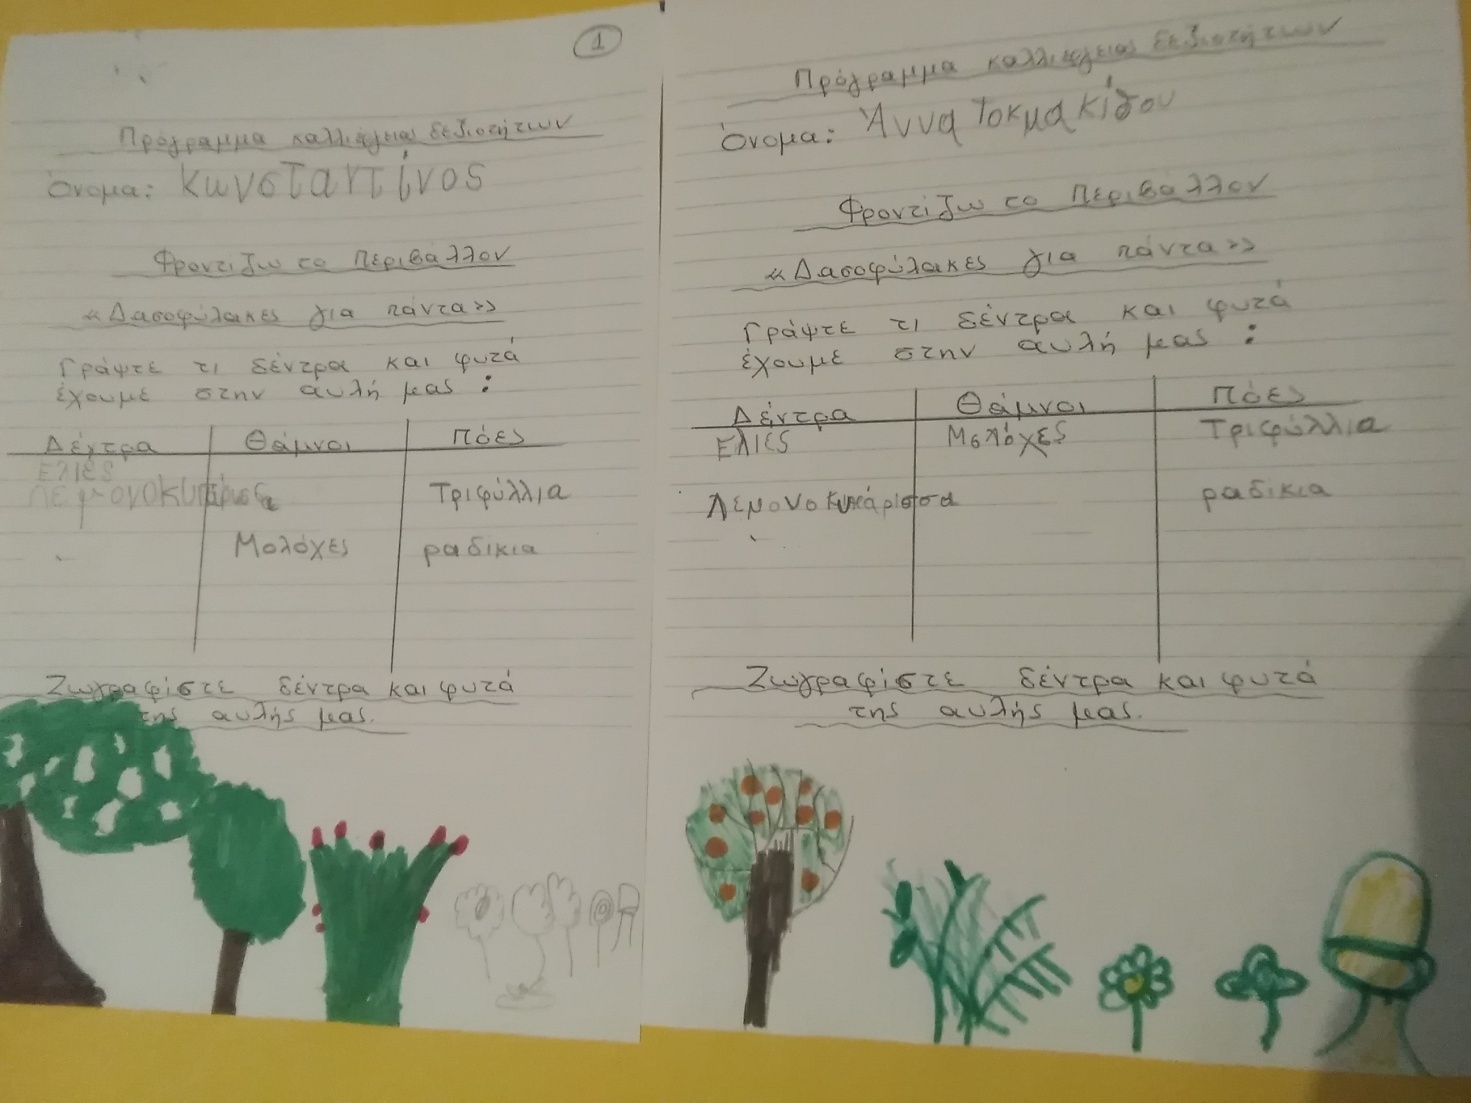 1
Πρόγραμμα καλλιέργειας δεξιοτήτων
Όνομα: Κωνσταντίνος
Φροντίζω το Περιβάλλον
«Δασοφύλακες για πάντα»
Γράψτε τι δέντρα και φυτά
έχουμε στην αυλή μας :
Δέντρα Θάμνοι Πόες
Ελιές
Λεμονοκυπάρισσα Τριφύλλια
Μολόχες ραδικια
Ζωγραφίστε δέντρα και φυτά
της αυλής μας.
Πρόγραμμα καλλιέργειας δεξιοτήτων
Όνομα: Άννα Τοκμακίδου
Φροντίζω το Περιβάλλον
«Δασοφύλακες για πάντα»
Γράψτε τι δέντρα και φυτά
έχουμε στην αυλή μας :
Δέντρα Θάμνοι Πόες
Ελιές Μολόχες Τριφύλλια
Λεμονοκυπάρισσα ραδικια
Ζωγραφίστε δέντρα και φυτά
της αυλής μας.